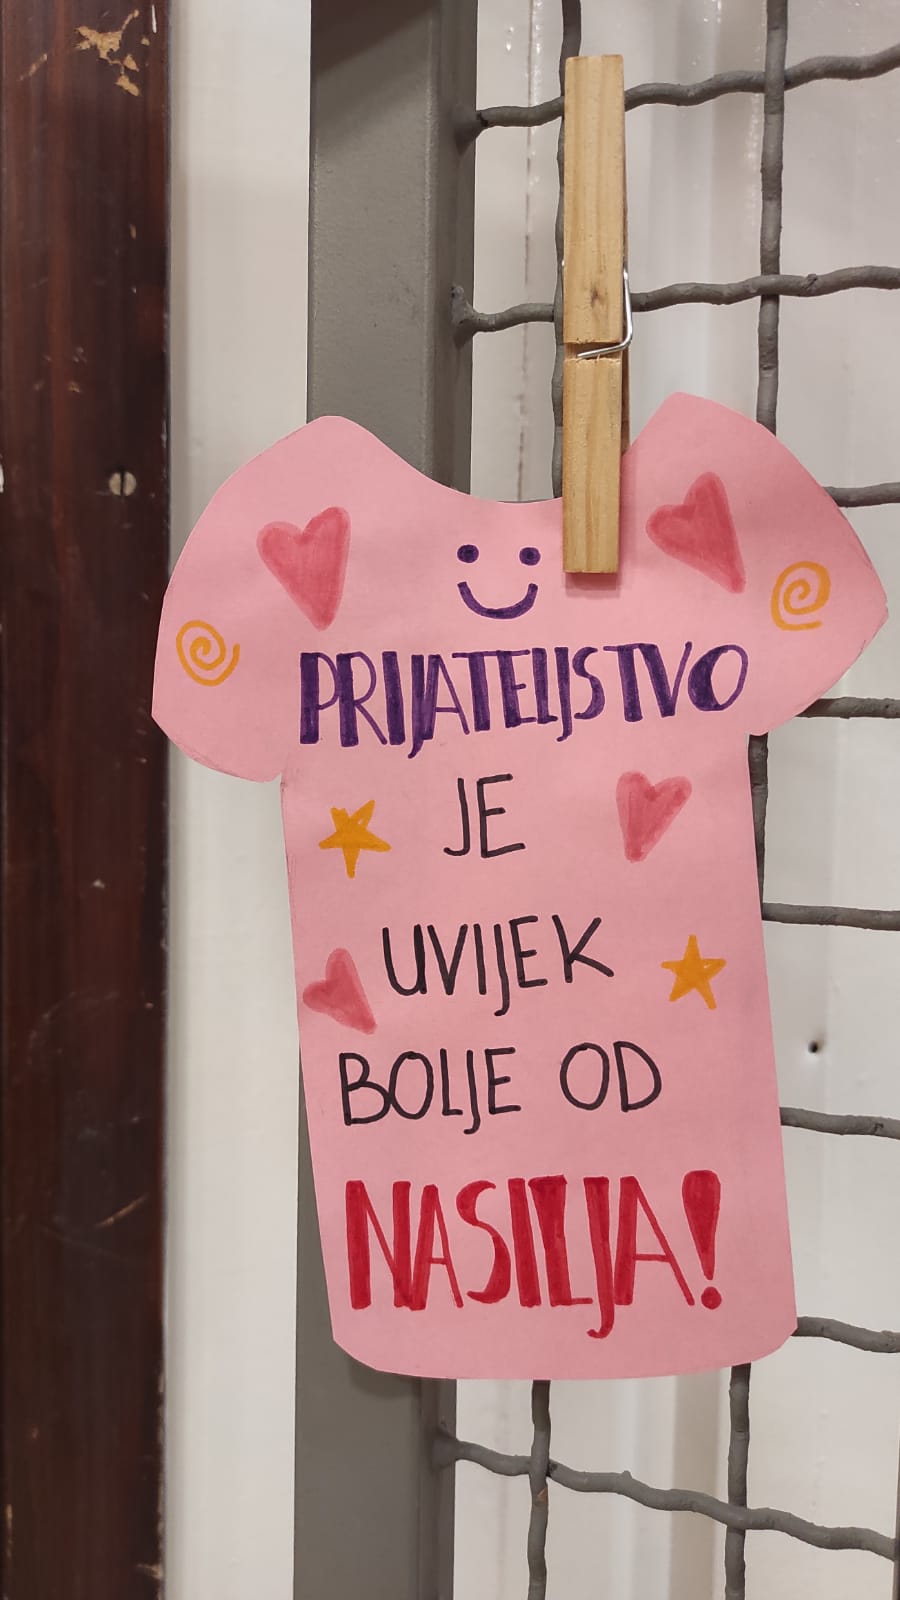 PRIJATELJSTVO
JE
UVIJEK
BOLJE OD
NASILJA!